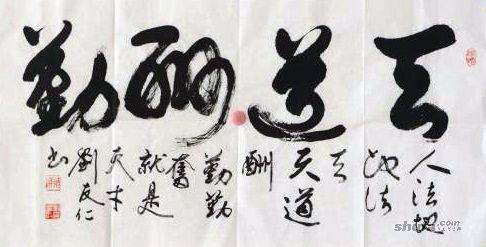 天道酬勤
人法地
地法
天
天道
酬
勤勤
奮
就是
天才
劉友仁
书